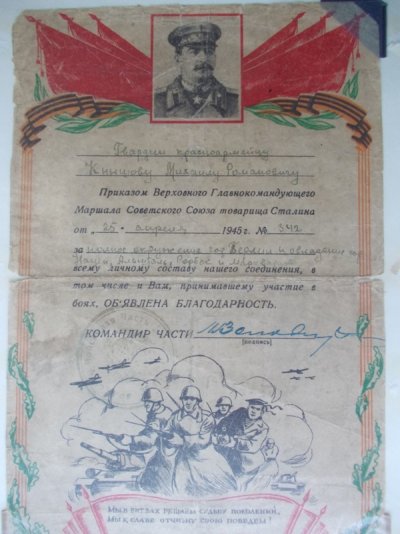 Гвардии красноармейцу
Кнышову Михаилу Романовичу
Приказом Верховного Главнокомандующего
Маршала Советского Союза товарища Сталина
от "25" апреля 1945г. № 342
за полное окружение гор Берлин и овладение гор
Науен, Эльшталь, Рорбек и
всему личному составу нашего соединения, в
том числе и Вам, принимавшему участие в
боях, ОБ'ЯВЛЕНА БЛАГОДАРНОСТЬ.
КОМАНДИР ЧАСТИ
(подпись)
МЫ В БИТВАХ РЕШАЕМ СУДЬБУ ПОКОЛЕНИЙ,
МЫ К СЛАВЕ ОТЧИЗНУ СВОЮ ПОВЕДЕМ!